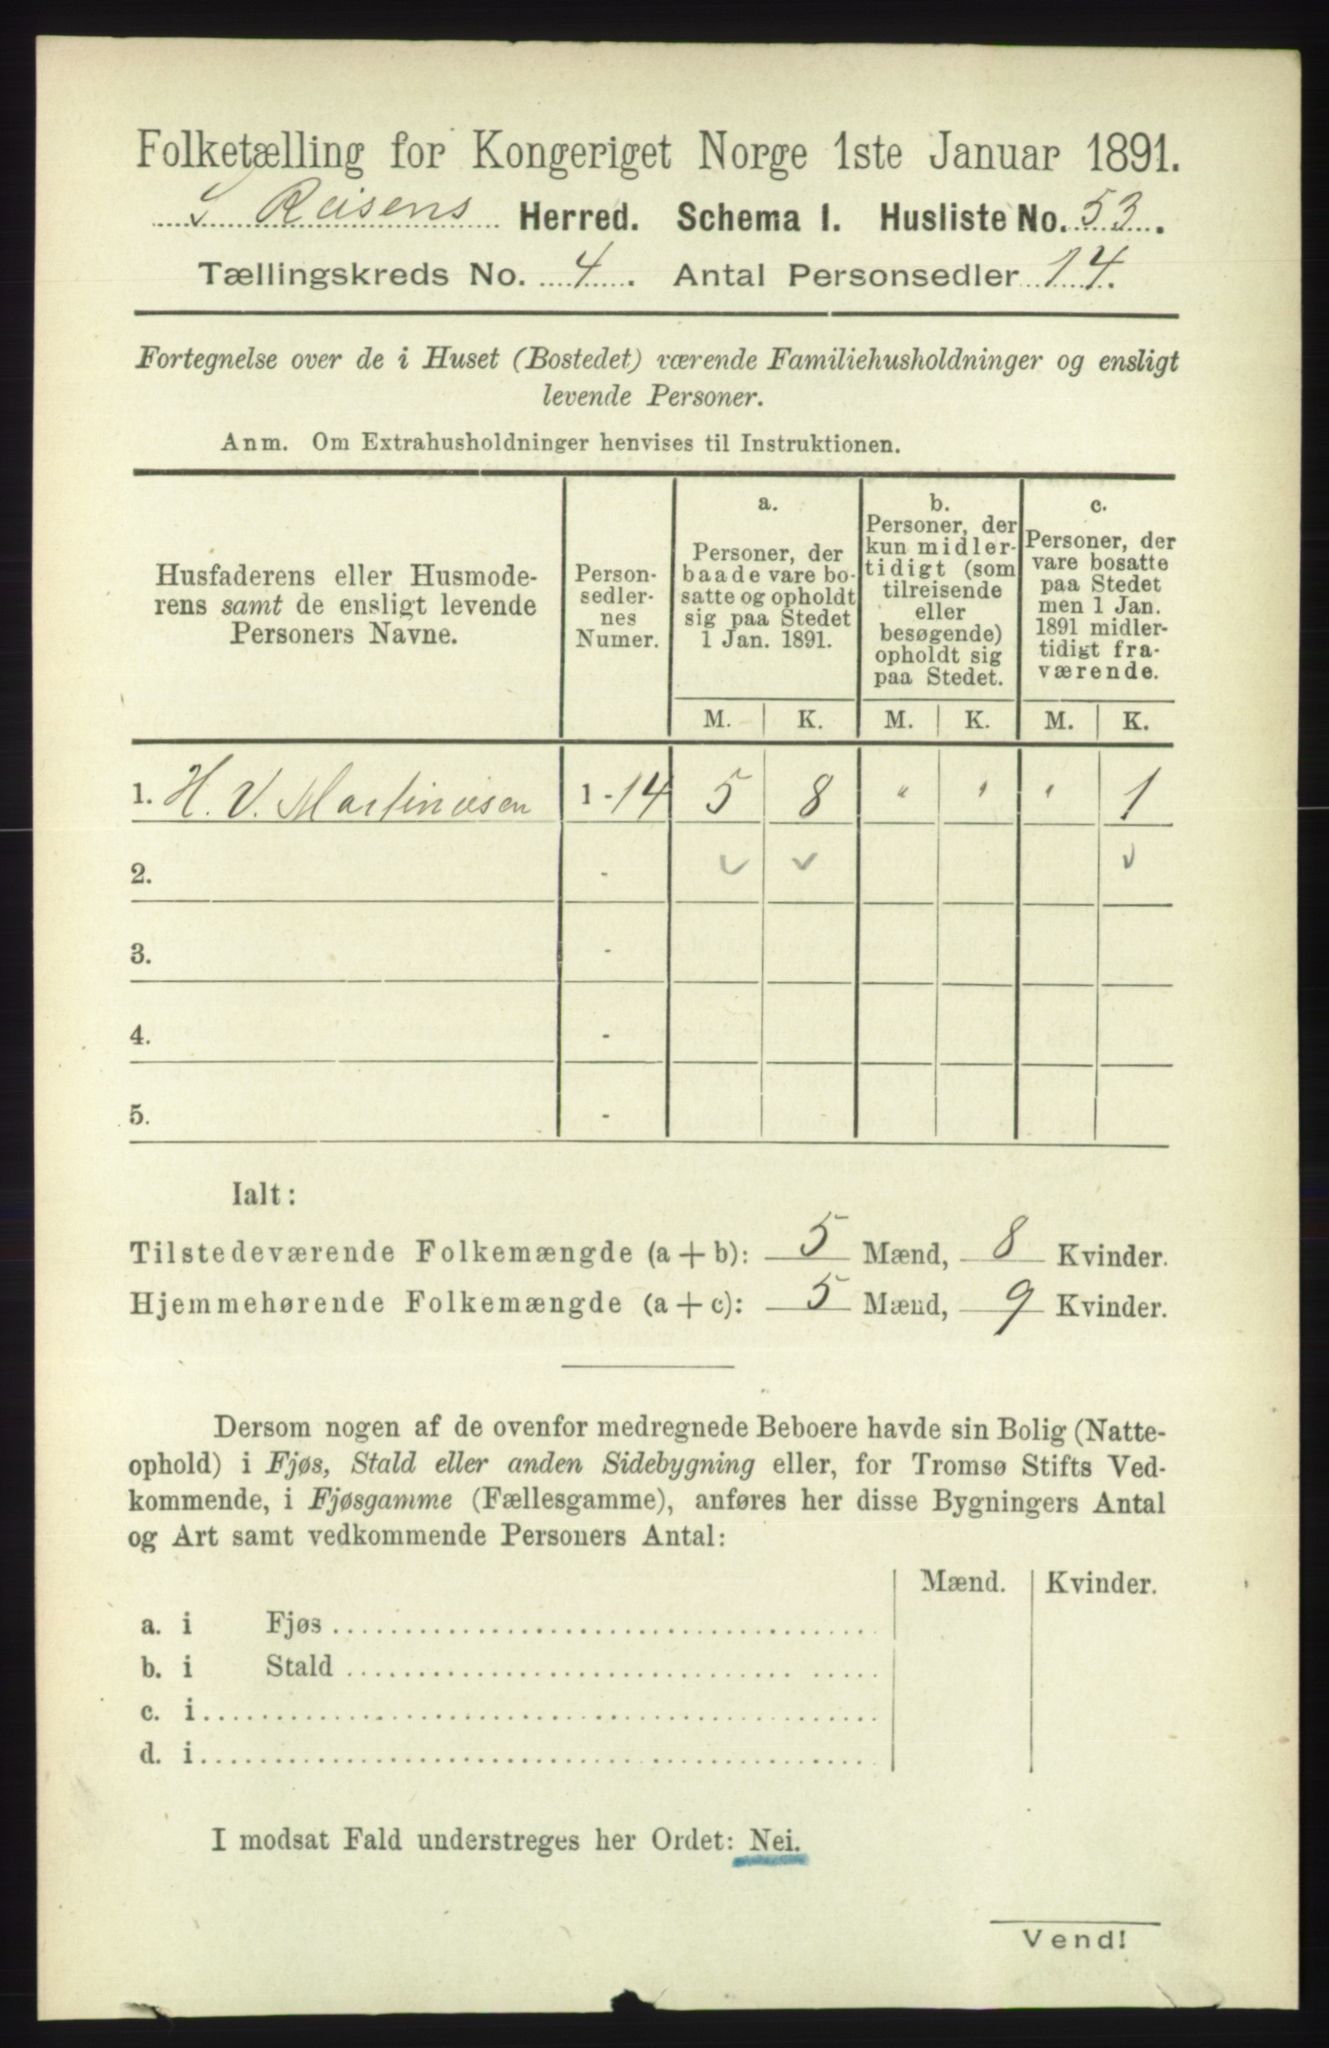 Folketælling for Kongeriget Norge 1ste Januar 1891.
S Reisens Herred. Schema I. Husliste No. 53.
Tællingskreds No. 4. Antal Personsedler 14.
Fortegnelse over de i Huset (Bostedet) værende Familiehusholdninger og ensligt
levende Personer.
Anm. Om Extrahusholdninger henvises til Instruktionen.
Husfaderens eller Husmode-
rens samt de ensligt levende
Personers Navne.
Person-
sedler-
nes
Numer.
a.
Personer, der
baade vare bo-
satte og opholdt
sig paa Stedet
1 Jan. 1891.
b.
Personer, der
kun midler-
tidigt (som
tilreisende
eller
besøgende)
opholdt sig
paa Stedet.
c.
Personer, der
vare bosatte
paa Stedet
men 1 Jan.
1891 midler-
tidigt fra-
værende.
M. K. M. K. M. K.
1. H. V. Martinusen 1 - 14 5 8 " " " 1
2. -
3. -
4. -
5. -
Ialt:
Tilstedeværende Folkemængde (a + b): 5 Mænd, 8 Kvinder.
Hjemmehørende Folkemængde (a + c): 5 Mænd, 9 Kvinder.
Dersom nogen af de ovenfor medregnede Beboere havde sin Bolig (Natte-
ophold) i Fjøs, Stald eller anden Sidebygning eller, for Tromsø Stifts Ved-
kommende, i Fjøsgamme (Fællesgamme), anføres her disse Bygningers Antal
og Art samt vedkommende Personers Antal:
Mænd. Kvinder.
a. i Fjøs
b. i Stald
c. i
d. i
I modsat Fald understreges her Ordet: Nei.
Vend!